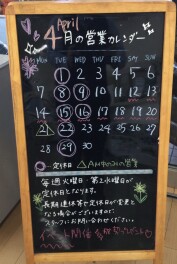 April
4月の営業カレンダー
MON TUE WED THU FRI SAT
1 2 3 4 5 6
7 8 9 10 11 12 13
14 15 16 17 18 19 20
21 22 23 24 25 26 27
28 29 30
○…定休日 △AMのみの営業
毎週火曜日・第2水曜日が
定休日となります。
長期連休等で定休日が変更と
なる場合がございますので
スタッフにお問い合わせください